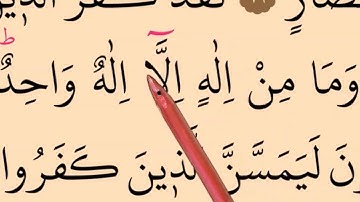 كَفَرَ الَّذ۪ينَ
وَمَا مِنْ اِلٰهٍ اِلَّٓا اِلٰهٌ وَاحِدٌۜ
لَيَمَسَّنَّ الَّذ۪ينَ كَفَرُوا